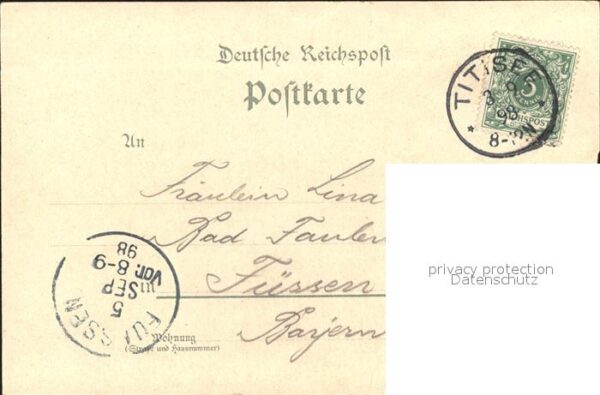 Deutsche Reichspost
Postkarte
TITISEE
98
8-12N
5
REICHSPOST
An
Fräulein Lina
Bad Faulen
in Füssen
Bayern
Wohnung
(Straße und Hausnummer)
FÜSSEN
5
SEP
Vor. 8-9
98
privacy protection
Datenschutz